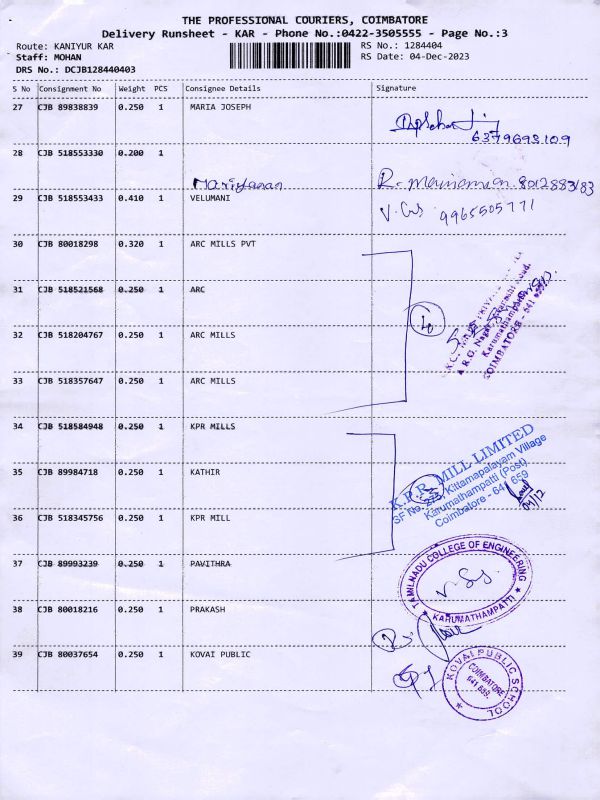 THE PROFESSIONAL COURIERS, COIMBATORE
Delivery Runsheet - KAR - Phone No.:0422-3505555 - Page No.:3
Route: KANIYUR KAR
Staff: MOHAN
DRS No.: DCJB128440403
RS No.: 1284404
RS Date: 04-Dec-2023
S No Consignment No Weight PCS Consignee Details Signature
27 CJB 89838839 0.250 1 MARIA JOSEPH
6379698109
28 CJB 518553330 0.200 1
Mariyanan
8012883183
29 CJB 518553433 0.410 1 VELUMANI
9965505771
30 CJB 80018298 0.320 1 ARC MILLS PVT
31 CJB 518521568 0.250 1 ARC
32 CJB 518204767 0.250 1 ARC MILLS
33 CJB 518357647 0.250 1 ARC MILLS
A R.G. Nagar
Karumathampatti
COIMBATORE - 641
34 CJB 518584948 0.250 1 KPR MILLS
35 CJB 89984718 0.250 1 KATHIR
36 CJB 518345756 0.250 1 KPR MILL
K.P.R. MILL LIMITED
SF No. Kittampalayam Village
Karumathampatti (Post)
Coimbatore - 641 659
04/12
37 CJB 89993239 0.250 1 PAVITHRA
TAMILNADU COLLEGE OF ENGINEERING
KARUMATHAMPATTI
38 CJB 80018216 0.250 1 PRAKASH
39 CJB 80037654 0.250 1 KOVAI PUBLIC
KOVAI PUBLIC SCHOOL
COIMBATORE